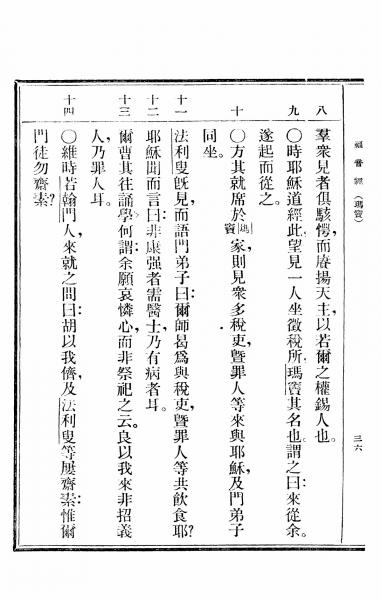 福音經（瑪竇）
三六
八 羣衆見者俱駭愕，而賡揚天主，以若爾之權錫人也。
九 〇時耶穌道經此，望見一人坐徵稅所，瑪竇其名也，謂之曰：來從余。
遂起而從之。
十 〇方其就席於瑪竇家，則見衆多稅吏，曁罪人等來與耶穌，及門弟子
同坐。
十一 法利叟旣見，而語門弟子曰：爾師曷爲與稅吏，曁罪人等共飲食耶？
十二 耶穌聞而言曰：非康强者需醫士，乃有病者耳。
十三 爾曹其往誦學何謂：余願哀憐心，而非祭祀之云。良以我來非招義
人，乃罪人耳。
十四 〇維時若翰門人，來就之問曰：胡以我儕，及法利叟等屢齋素：惟爾
門徒勿齋素？